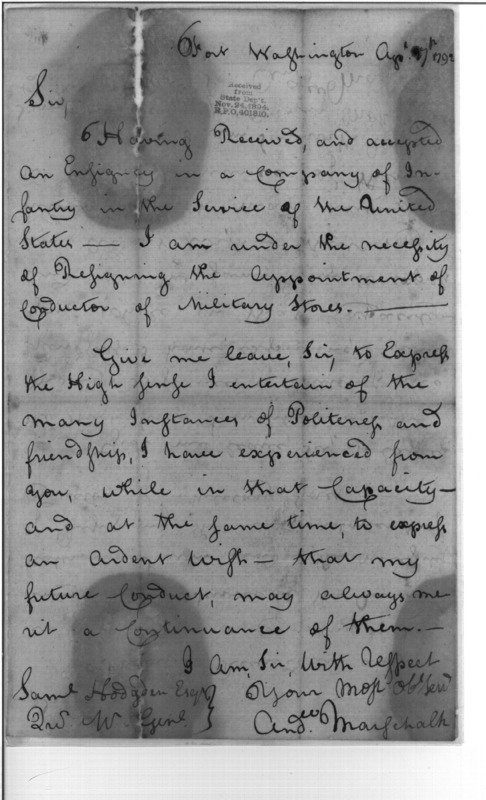 Fort Washington Apl 17th 1792
Received
from
State Dep't.
Nov. 24, 1894.
R.P.O. 401810.
Sir,
Having Received, and accepted
an Ensigncy in a Company of In-
fantry in the Service of the United
States — I am under the necessity
of Resigning the Appointment of
Conductor of Military Stores. —
Give me leave, Sir, to Express
the High sense I entertain of the
many Instances of Politeness and
friendship, I have experienced from
you, while in that Capacity —
and at the same time, to express
an Ardent Wish — that my
future Conduct, may always me
rit a Continuance of them. —
I Am, Sir, With Respect
Your Most Obt Servt
Andw Marschalk
Saml Hodgden Esqr
Qr Mr Genl.